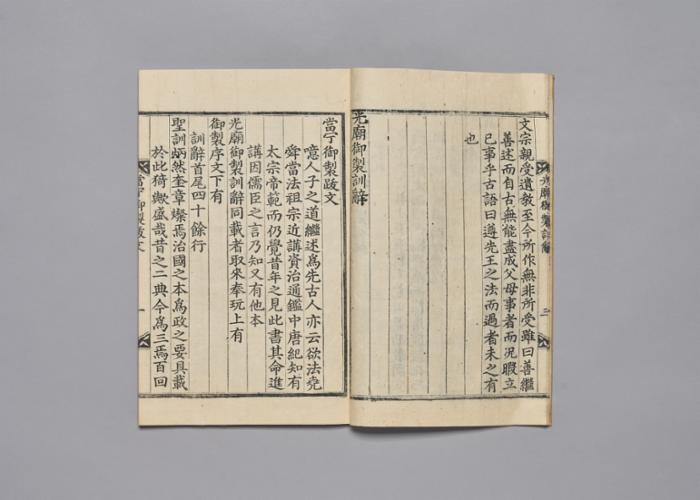 光廟御製訓辭 二
文宗親受遺教至今所作無非所受雖曰善繼
善述而自古無能盡成父母事者而況暇立
已事乎古語曰遵先王之法而過者未之有
也
光廟御製訓辭
當宁御製跋文
噫人子之道繼述爲先古人亦云欲法堯
舜當法祖宗近講資治通鑑中唐紀知有
太宗帝範而仍覺昔年之見此書其命進
講因儒臣之言乃知又有他本
光廟御製訓辭同載者取來奉玩上有
御製序文下有
訓辭首尾四十餘行
聖訓炳然奎章燦焉治國之本爲政之要具載
於此猗歟盛哉昔之二典今爲三焉百回
當宁御製跋文 一